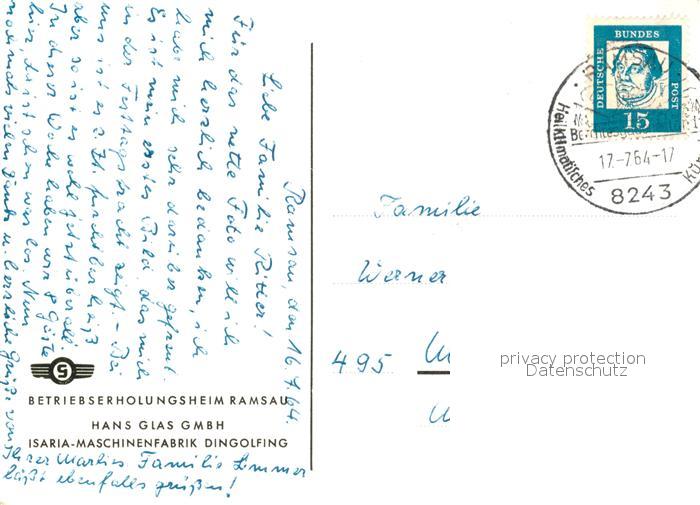 Ramsau, den 16.7.64.
Liebe Familie Ritter!
Für das nette Foto will ich
mich herzlich bedanken, ich
habe mich sehr darüber gefreut.
Es ist mein erstes Bild, das mich
in der Festtagstracht zeigt. - Bei
uns ist es z. Zt. furchtbar heiß
aber so ist es wohl jetzt überall.
In dieser Woche haben wir 8 Gäste
hier, da ist schon was los. Nun
nochmals vielen Dank u. herzliche Grüße von
Ihrer Familie
läßt ebenfalls grüßen!
BETRIEBSERHOLUNGSHEIM RAMSAU
HANS GLAS GMBH
ISARIA-MASCHINENFABRIK DINGOLFING
DEUTSCHE BUNDES POST
15
Heilklimatisches
17.-7.64-17
8243
Familie
Werner
495
privacy protection
Datenschutz